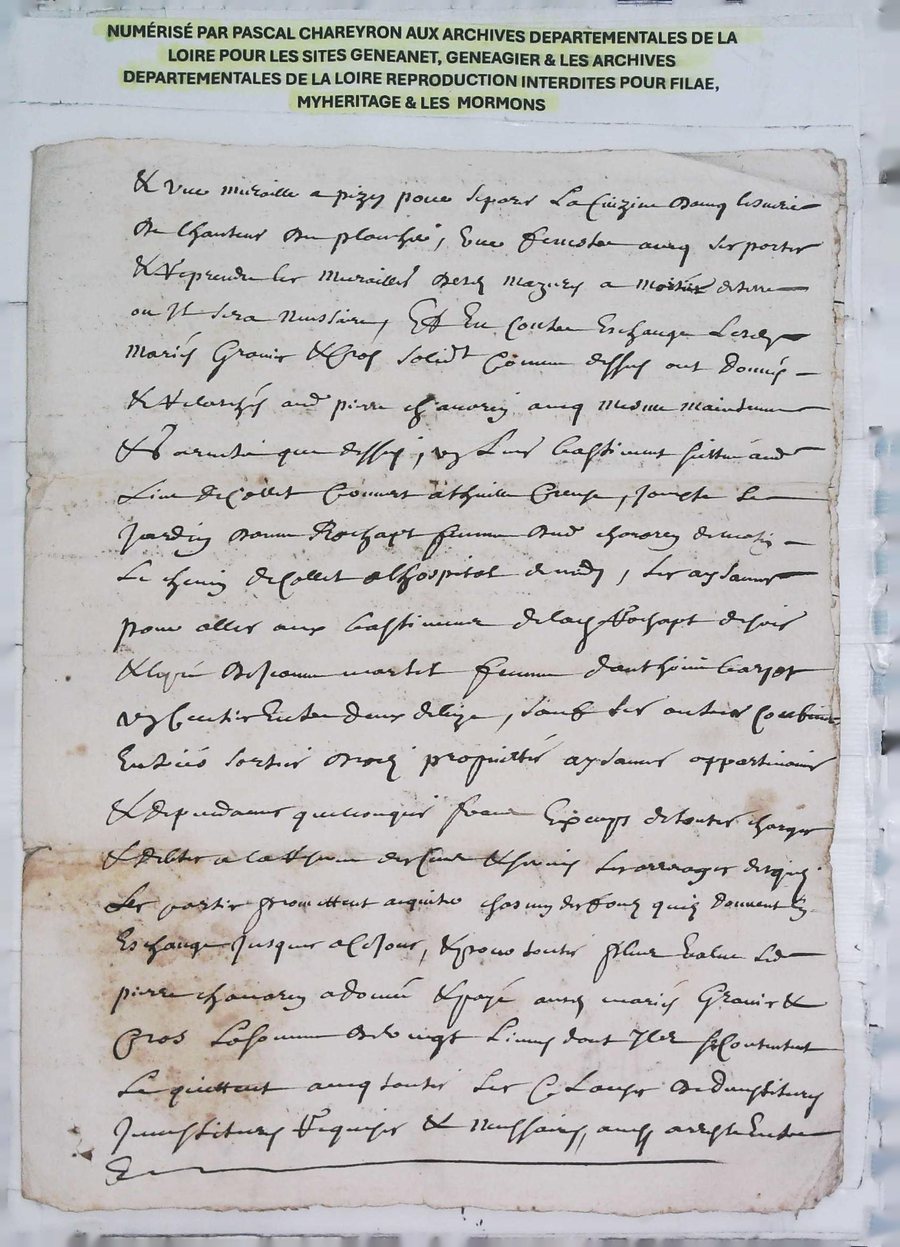 NUMÉRISÉ PAR PASCAL CHAREYRON AUX ARCHIVES DEPARTEMENTALES DE LA
LOIRE POUR LES SITES GENEANET, GENEAGIER & LES ARCHIVES
DEPARTEMENTALES DE LA LOIRE REPRODUCTION INTERDITES POUR FILAE,
MYHERITAGE & LES MORMONS
& une muraille a pizey pour separer La Cuizine
de lhauteur du planché, une fenestre avecq ses portes
& Reprendre les murailles masures a mortier de terre
ou Il sera nessaire, Et En Contre Eschange Lesdz
mariés Granier & Cros solidt Comme dessus ont donnés
& Relaschés aud pierre chavaren avecq mesme maintenue
& que dessus, ung Leur bastiment sittué aud
Lieu de Collet Couvert a thuille Creuse, Jouxte Le
Jardin Rochapt femme dud chavaren de matin
Le chemin de Collet a lhospital de midy, Les aysances
pour aller aux bastiments de lad Rochapt de soir
& de Jeanne martel femme danthoine
ung Entre deux de bize, sauf ses autres Confins
Entrées sorties proprietés aysances appartenances
& dependances quelconques franc Exempt de toutes charges
& debtes a la Reserve des Cens & servis Les arrerages desquels
Les parties promettent acquitter chascung des fonds quilz donnent En
Eschange Jusques a Ce Jour, & pour toute plus value Led
pierre chavaren a donné & payé ausd mariés Granier &
Cros La somme de vingt Livres dont Ilz se Contentent
Le quittent avecq toutes Les Clauses de devestitures
Jnvestitures Requises & nessaires, arresté Entre